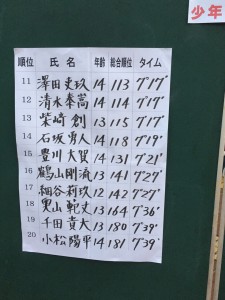 少年
順位 氏名 年齢 総合順位 タイム
11 澤田吏玖 14 113 7'17"
12 清水奉嵩 14 114 7'17"
13 柴崎創 13 115 7'17"
14 石坂勇人 14 118 7'19"
15 豊川大賀 14 131 7'21"
16 鶴山剛流 13 141 7'27"
17 細谷莉玖 12 142 7'27"
18 男山範丈 13 164 7'36"
19 千田貴大 13 180 7'39"
20 小松陽平 14 181 7'39"